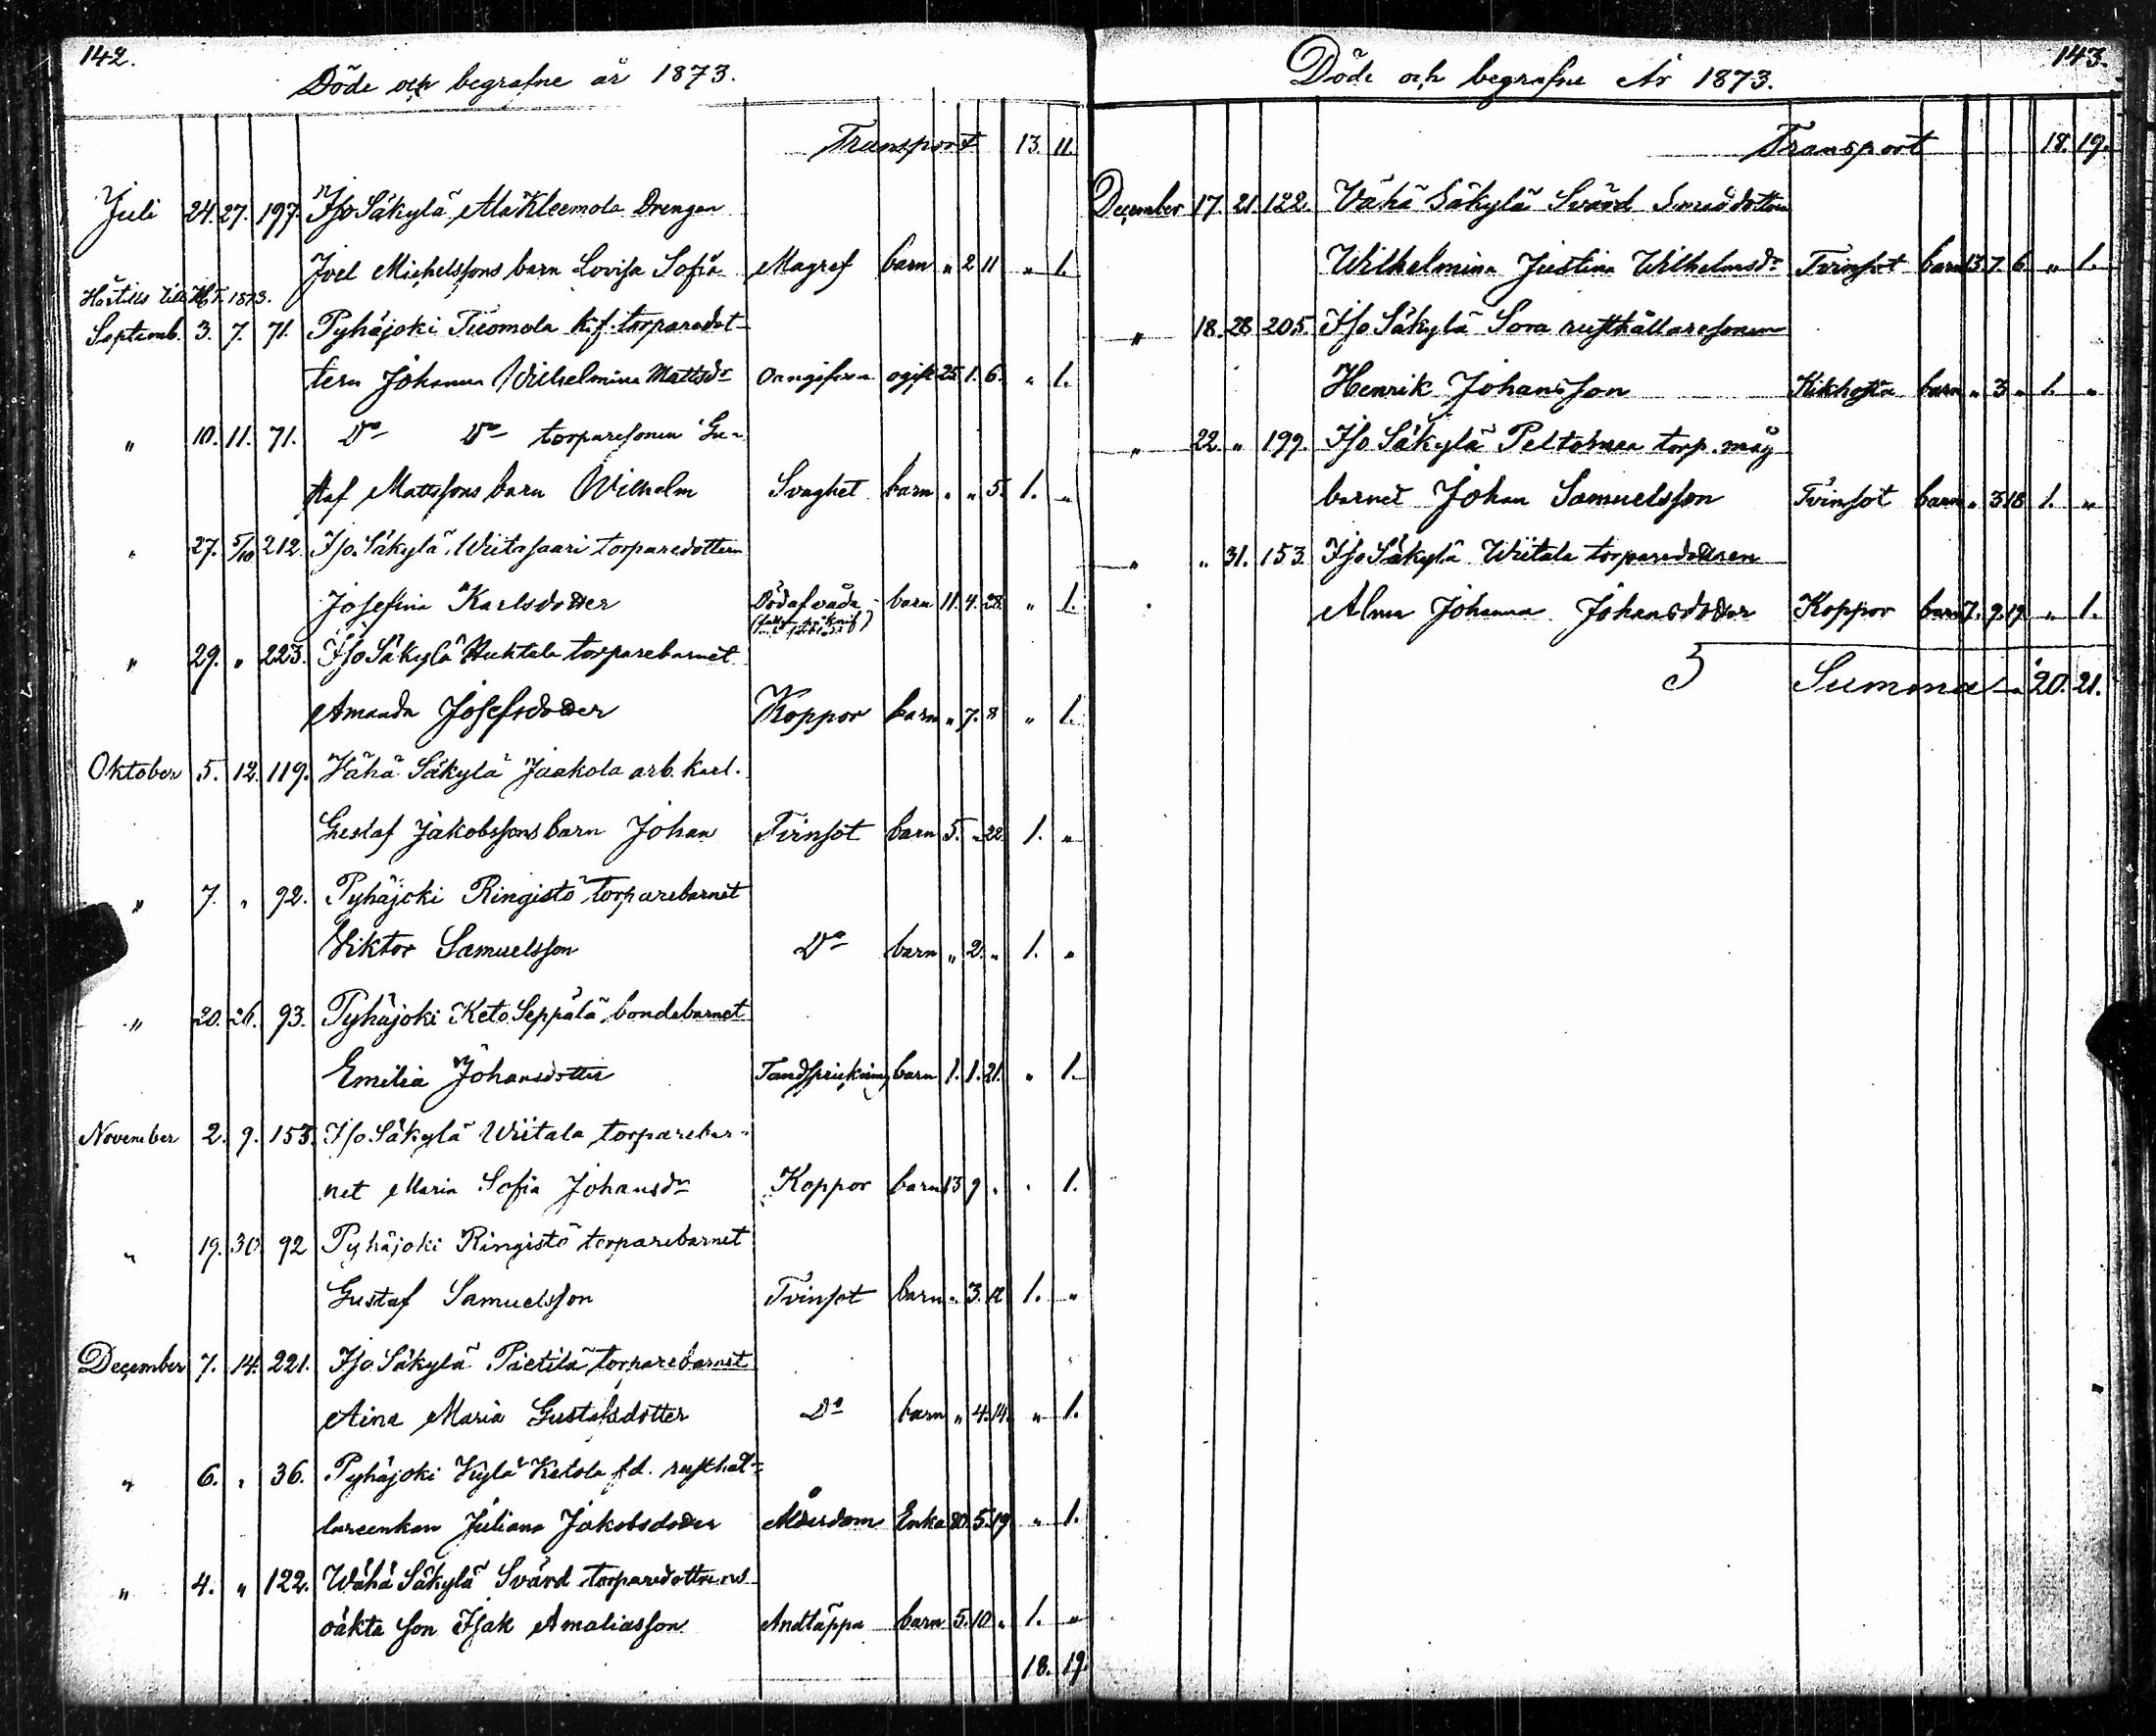 142.
Döde och begrafne år 1873.
Transport 13. 11.
Juli 24. 27. 197. Iso Säkylä Ala Kleemola Drengen
Joel Michelssons barn Lovisa Sofia Magref barn " 2 11 " 1.
Hörtills till H.T. 1873.
Septemb. 3. 7. 71. Pyhäjoki Tuomola k.f. torparedot-
tern Johanna Wilhelmina Mattsdr ogift 25 1. 6. " 1.
" 10. 11. 71. Do Do torparesonen Gu-
staf Mattssons barn Wilhelm Svaghet barn " " 5. 1. "
" 27. 5/10 212. Iso Säkylä Wiitasaari torparedottern
Josefina Karlsdotter Död af våda barn 11. 4. 28. " 1.
" 29. " 223. Iso Säkylä Huhtala torparebarnet
Amanda Josefsdotter Koppor barn " 7. 8 " 1.
Oktober 5. 12. 119. Vähä Säkylä Jaakola arb. karl.
Gustaf Jakobssons barn Johan Tvinsot barn 5. " 22. 1. "
" 7. " 92. Pyhäjoki Ringistö torparebarnet
Viktor Samuelsson Do barn " 2. " 1. "
" 20. 26. 93. Pyhäjoki Keto Seppälä bondebarnet
Emilia Johansdotter Tandsprickning barn 1. 1. 21. " 1.
November 2. 9. 153. Iso Säkylä Wiitala torparebar-
net Maria Sofia Johansdr Koppor barn 13 9 " " 1.
" 19. 30 92 Pyhäjoki Ringistö torparebarnet
Gustaf Samuelsson Tvinsot barn " 3. 12 1. "
December 7. 14. 221. Iso Säkylä Pietilä torparebarnet
Aina Maria Gustafsdotter Do barn " 4. 14. " 1.
" 6. " 36. Pyhäjoki Kylä Ketola f.d. rusthål-
lareenkan Juliana Jakobsdotter Ålderdom Enka 80. 5. 19 " 1.
" 4. " 122. Wähä Säkylä Svärd torparedotterns
oäkta son Isak Amaliasson Andtäppa barn 5. 10. " 1. "
18. 19.
143.
Döde och begrafne År 1873.
Transport 18. 19.
December 17. 21. 122. Vähä Säkylä Svärd Smeddottren
Wilhelmina Justina Wilhelmsdr Tvinsot barn 13. 7. 6. " 1.
" 18. 28. 205. Iso Säkylä Sora rusthållaresonen
Henrik Johansson Kikhosta barn " 3 " 1. "
" 22. " 199. Iso Säkylä Peltomaa torp. måg
barnet Johan Samuelsson Tvinsot barn " 3 18 1. "
" " 31. 153. Iso Säkylä Wiitala torparedottren
Alma Johanna Johansdotter Koppor barn 7. 9. 19. " 1.
5 Summa 20. 21.